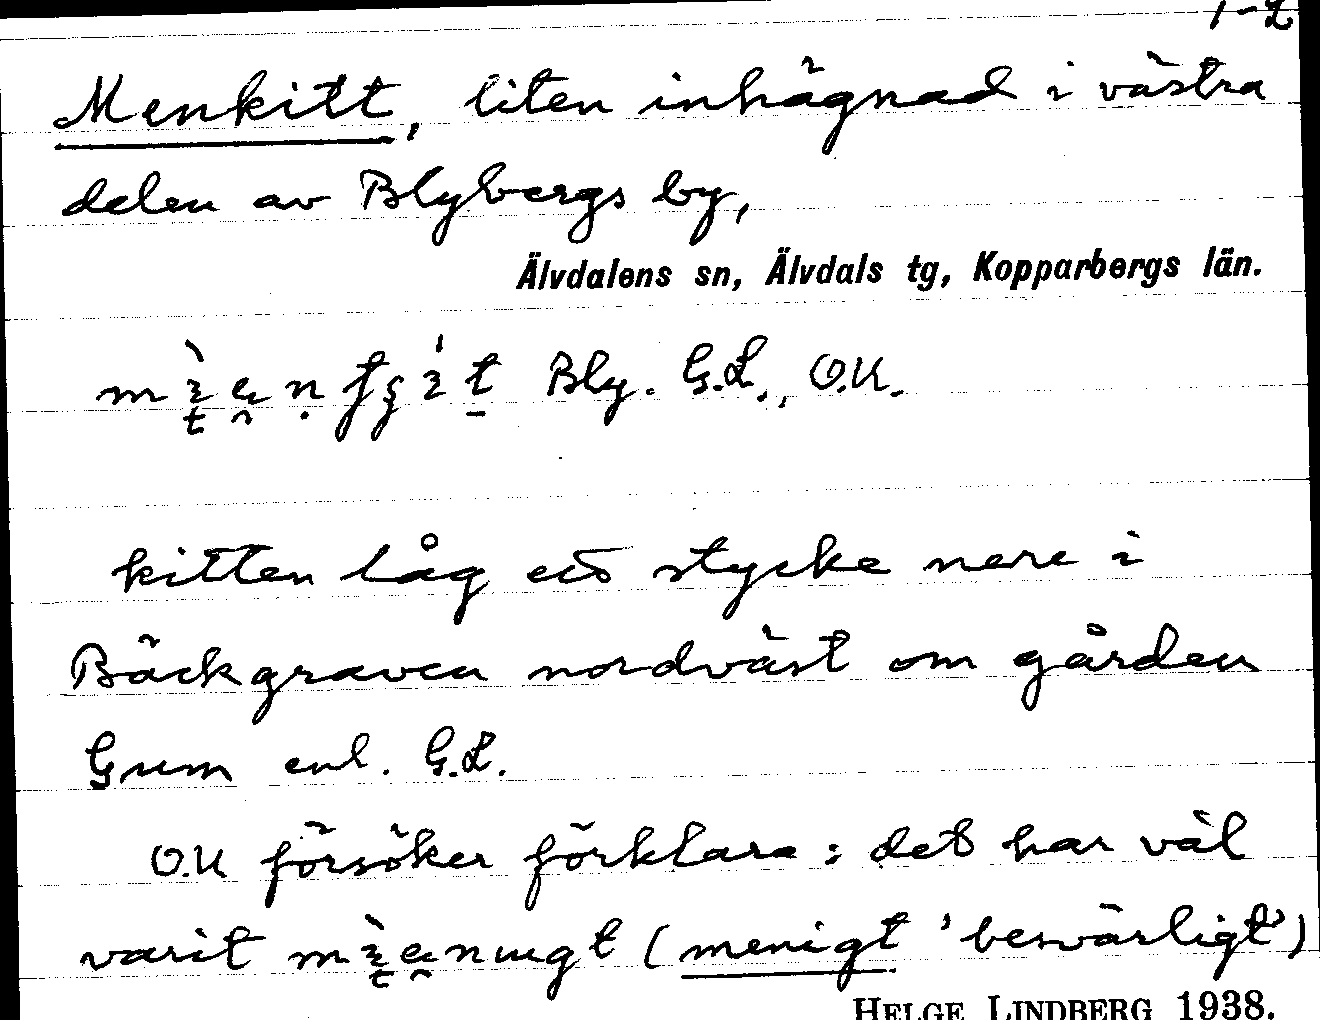 1-2
Menkitt, liten inhägnad i västra
delen av Blybergs by,
Älvdalens sn, Älvdals tg, Kopparbergs län.
Bly. G.L., O.U.
kitten låg ett stycke nere i
Bäckgraven nordväst om gården
Grum enl. G.L.
O.U försöker förklara: det har väl
varit (menigt 'besvärligt')
HELGE LINDBERG 1938.